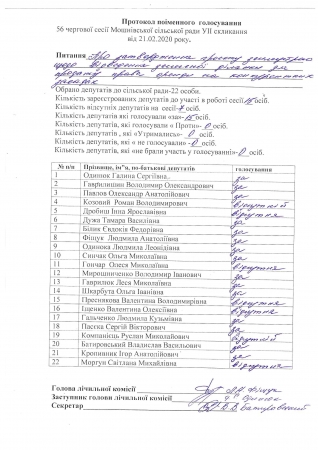 Протокол поіменного голосування
56 чергової сесії Мошнівської сільської ради УІІ скликання
від 21.02.2020 року.
Питання -Про затвердження проекту землеустрою
щодо відведення земельної ділянки для
продажу права оренди на конкурентних
засадах
Обрано депутатів до сільської ради-22 особи.
Кількість зареєстрованих депутатів до участі в роботі сесії 15 осіб.
Кількість відсутніх депутатів на сесії-7 осіб.
Кількість депутатів які голосували «за»-15 осіб
Кількість депутатів, які голосували « Проти»- 0 осіб.
Кількість депутатів , які «Утримались»- 0 осіб.
Кількість депутатів, які «не голосували» - 0 осіб.
Кількість депутатів, які «не брали участь у голосуванні»- 0 осіб.
№ п/п Прізвище, ім"я, по-батькові депутатів голосування
1 Одинюк Галина Сергіївна.. за
2 Гаврилишин Володимир Олександрович за
3 Павлов Олександр Анатолійович за
4 Узковий Роман Володимирович відсутній
5 Дробиш Інна Ярославівна відсутня
6 Дужа Тамара Василівна за
7 Білик Євдокія Федорівна за
8 Фіщук Людмила Анатоліївна за
9 Одинока Людмила Леонідівна за
10 Синчак Ольга Миколаївна за
11 Гончар Олеся Миколаївна відсутня
12 Мирошниченко Володимир Іванович за
13 Гаврилюк Леся Миколаївна за
14 Шкарбута Ольга Іванівна за
15 Преснякова Валентина Володимирівна відсутня
16 Іщенко Валентина Олексіївна відсутня
17 Гальченко Людмила Кузьмівна за
18 Пасєка Сергій Вікторович за
19 Компанієць Руслан Миколайович відсутній
20 Батировський Владислав Васильович за
21 Кропивник Ігор Анатолійович за
22 Моргун Світлана Михайлівна відсутня
Голова лічильної комісії
Заступник голови лічильної комісії
Секретар